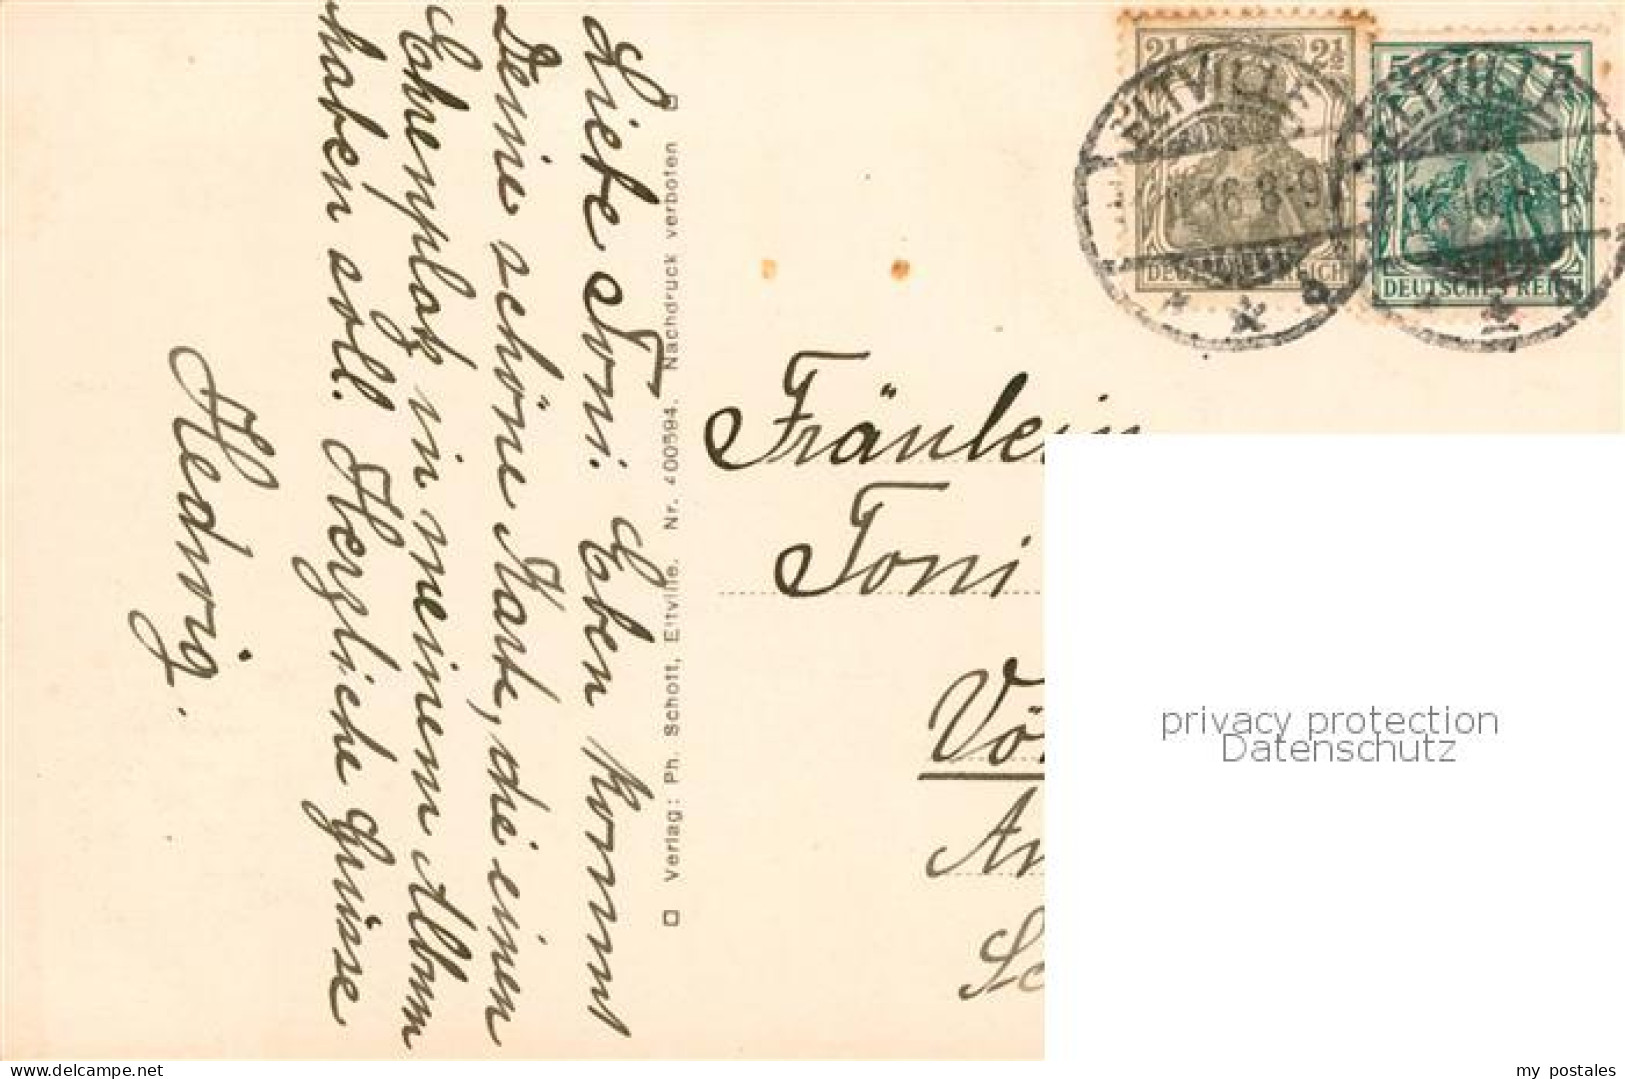 Liebe Toni. Eben kommt
Deine schöne Karte, die einen
Ehrenplatz in meinem Album
haben soll. Herzliche Grüsse
Hedwig.
Verlag: Ph. Schott, Eltville. Nr. 400594. Nachdruck verboten
2½ 2½
DEUTSCHES REICH
5 5
DEUTSCHES REICH
ELTVILLE
ELTVILLE
Fräulein
Toni
Vö
An
Sc
privacy protection
Datenschutz
delcampe.net
my_postales